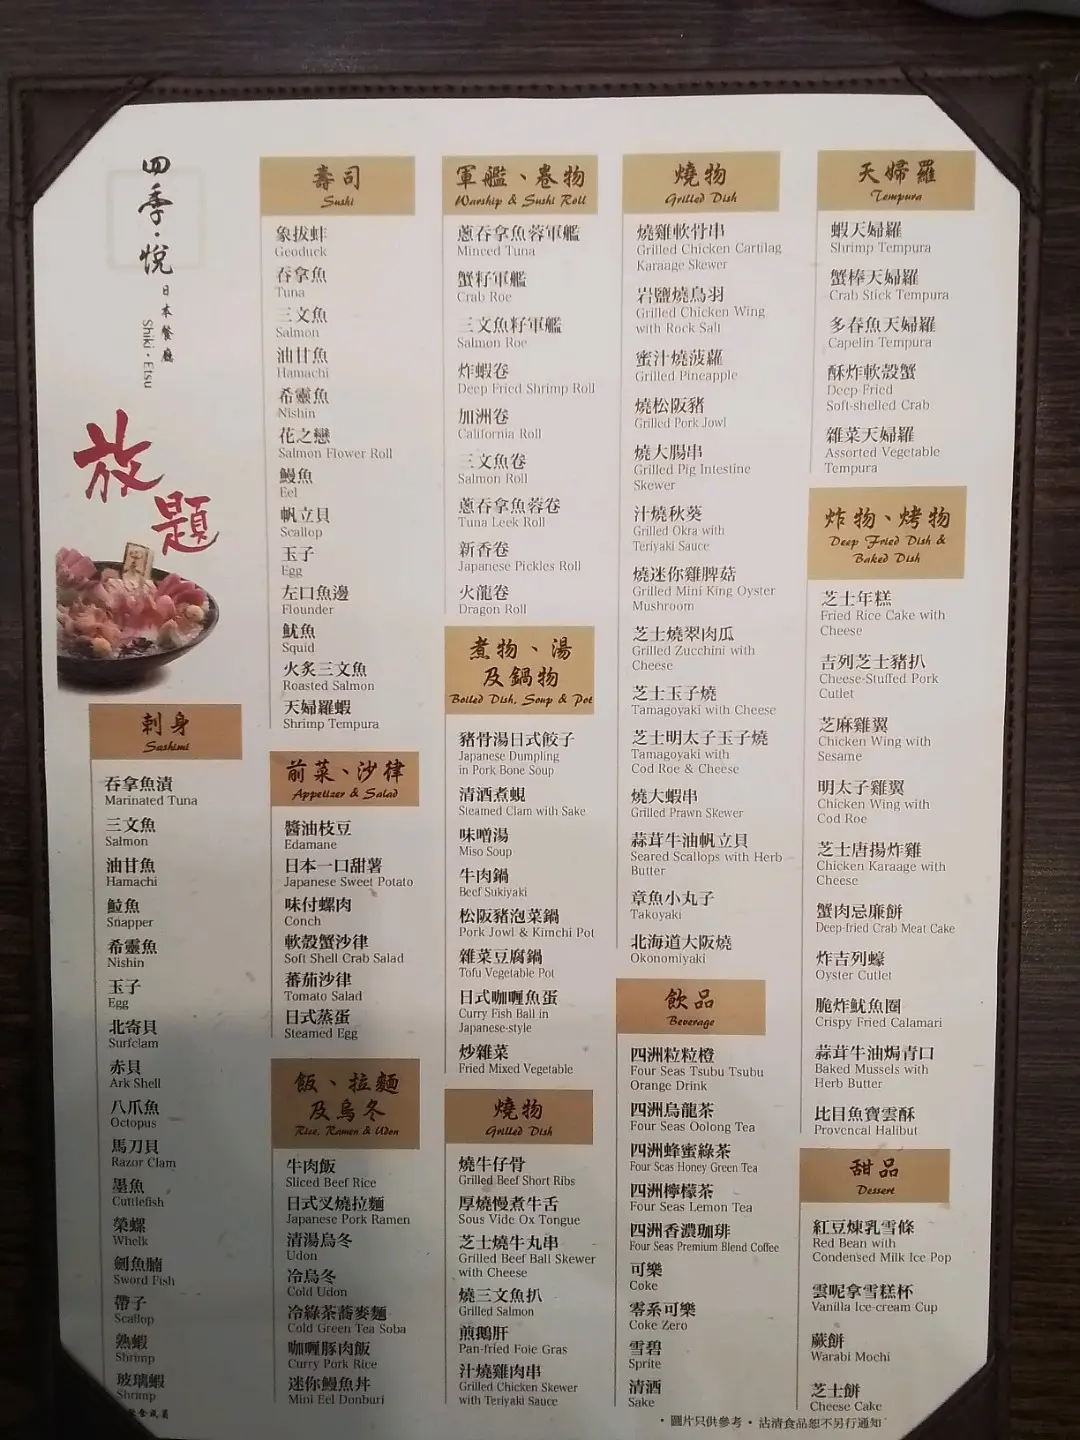 四季·悅
日本餐廳
Shiki · Etsu
放題
刺身
Sashimi
吞拿魚漬
Marinated Tuna
三文魚
Salmon
油甘魚
Hamachi
鯛魚
Snapper
希靈魚
Nishin
玉子
Egg
北寄貝
Surfclam
赤貝
Ark Shell
八爪魚
Octopus
馬刀貝
Razor Clam
墨魚
Cuttlefish
榮螺
Whelk
劍魚腩
Sword Fish
帶子
Scallop
熟蝦
Shrimp
玻璃蝦
Shrimp
壽司
Sushi
象拔蚌
Geoduck
吞拿魚
Tuna
三文魚
Salmon
油甘魚
Hamachi
希靈魚
Nishin
花之戀
Salmon Flower Roll
鰻魚
Eel
帆立貝
Scallop
玉子
Egg
左口魚邊
Flounder
魷魚
Squid
火炙三文魚
Roasted Salmon
天婦羅蝦
Shrimp Tempura
前菜、沙律
Appetizer & Salad
醬油枝豆
Edamane
日本一口甜薯
Japanese Sweet Potato
味付螺肉
Conch
軟殼蟹沙律
Soft Shell Crab Salad
蕃茄沙律
Tomato Salad
日式蒸蛋
Steamed Egg
飯、拉麵
及烏冬
Rice, Ramen & Udon
牛肉飯
Sliced Beef Rice
日式叉燒拉麵
Japanese Pork Ramen
清湯烏冬
Udon
冷烏冬
Cold Udon
冷綠茶蕎麥麵
Cold Green Tea Soba
咖喱豚肉飯
Curry Pork Rice
迷你鰻魚丼
Mini Eel Donburi
軍艦、卷物
Warship & Sushi Roll
蔥吞拿魚蓉軍艦
Minced Tuna
蟹籽軍艦
Crab Roe
三文魚籽軍艦
Salmon Roe
炸蝦卷
Deep Fried Shrimp Roll
加洲卷
California Roll
三文魚卷
Salmon Roll
蔥吞拿魚蓉卷
Tuna Leek Roll
新香卷
Japanese Pickles Roll
火龍卷
Dragon Roll
煮物、湯
及鍋物
Boiled Dish, Soup & Pot
豬骨湯日式餃子
Japanese Dumpling
in Pork Bone Soup
清酒煮蜆
Steamed Clam with Sake
味噌湯
Miso Soup
牛肉鍋
Beef Sukiyaki
松阪豬泡菜鍋
Pork Jowl & Kimchi Pot
雜菜豆腐鍋
Tofu Vegetable Pot
日式咖喱魚蛋
Curry Fish Ball in
Japanese-style
炒雜菜
Fried Mixed Vegetable
燒物
Grilled Dish
燒牛仔骨
Grilled Beef Short Ribs
厚燒慢煮牛舌
Sous Vide Ox Tongue
芝士燒牛丸串
Grilled Beef Ball Skewer
with Cheese
燒三文魚扒
Grilled Salmon
煎鵝肝
Pan-fried Foie Gras
汁燒雞肉串
Grilled Chicken Skewer
with Teriyaki Sauce
燒物
Grilled Dish
燒雞軟骨串
Grilled Chicken Cartilag
Karaage Skewer
岩鹽燒鳥羽
Grilled Chicken Wing
with Rock Salt
蜜汁燒菠蘿
Grilled Pineapple
燒松阪豬
Grilled Pork Jowl
燒大腸串
Grilled Pig Intestine
Skewer
汁燒秋葵
Grilled Okra with
Teriyaki Sauce
燒迷你雞脾菇
Grilled Mini King Oyster
Mushroom
芝士燒翠肉瓜
Grilled Zucchini with
Cheese
芝士玉子燒
Tamagoyaki with Cheese
芝士明太子玉子燒
Tamagoyaki with
Cod Roe & Cheese
燒大蝦串
Grilled Prawn Skewer
蒜茸牛油帆立貝
Seared Scallops with Herb
Butter
章魚小丸子
Takoyaki
北海道大阪燒
Okonomiyaki
飲品
Beverage
四洲粒粒橙
Four Seas Tsubu Tsubu
Orange Drink
四洲烏龍茶
Four Seas Oolong Tea
四洲蜂蜜綠茶
Four Seas Honey Green Tea
四洲檸檬茶
Four Seas Lemon Tea
四洲香濃珈琲
Four Seas Premium Blend Coffee
可樂
Coke
零系可樂
Coke Zero
雪碧
Sprite
清酒
Sake
天婦羅
Tempura
蝦天婦羅
Shrimp Tempura
蟹棒天婦羅
Crab Stick Tempura
多春魚天婦羅
Capelin Tempura
酥炸軟殼蟹
Deep Fried
Soft-shelled Crab
雜菜天婦羅
Assorted Vegetable
Tempura
炸物、烤物
Deep Fried Dish &
Baked Dish
芝士年糕
Fried Rice Cake with
Cheese
吉列芝士豬扒
Cheese-Stuffed Pork
Cutlet
芝麻雞翼
Chicken Wing with
Sesame
明太子雞翼
Chicken Wing with
Cod Roe
芝士唐揚炸雞
Chicken Karaage with
Cheese
蟹肉忌廉餅
Deep-fried Crab Meat Cake
炸吉列蠔
Oyster Cutlet
脆炸魷魚圈
Crispy Fried Calamari
蒜茸牛油焗青口
Baked Mussels with
Herb Butter
比目魚寶雲酥
Provencal Halibut
甜品
Dessert
紅豆煉乳雪條
Red Bean with
Condensed Milk Ice Pop
雲呢拿雪糕杯
Vanilla Ice-cream Cup
蕨餅
Warabi Mochi
芝士餅
Cheese Cake
·圖片只供參考·沽清食品恕不另行通知